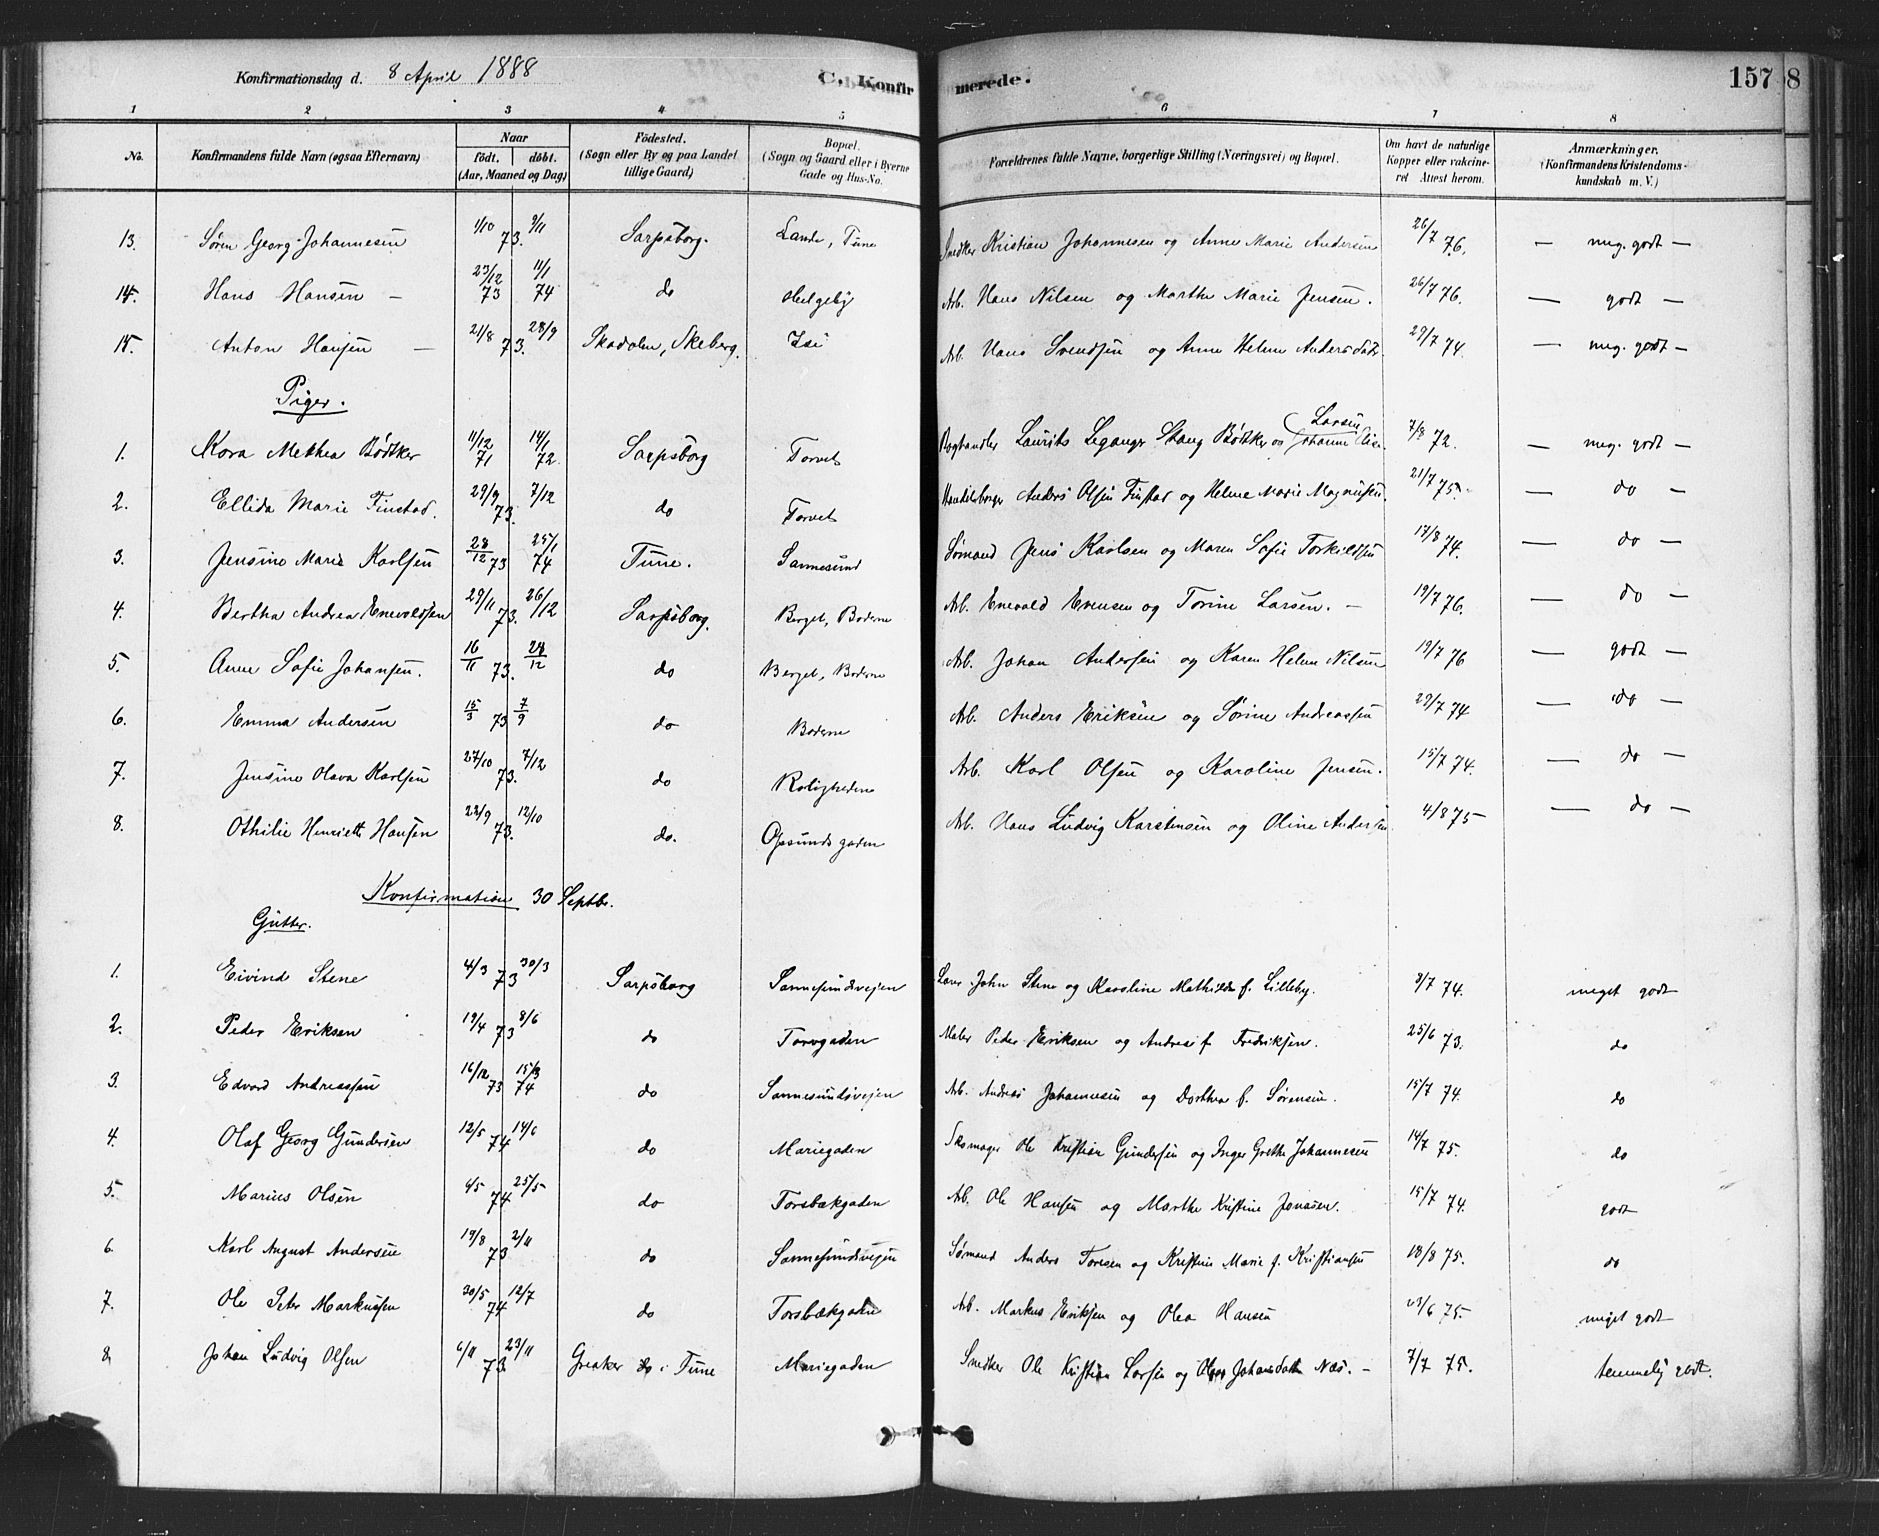 Konfirmationsdag d. 8 April 1888 C. Konfirmerede. 157 8
1 2 3 4 5 6 7 8
No. Konfirmandens fulde Navn (ogsaa Efternavn) Naar födt. döbt. (Aar, Maaned og Dag) Födested. (Sogn eller By og paa Landet tillige Gaard) Bopæl. (Sogn og Gaard eller i Byerne Gade og Hus-No. Forældrenes fulde Navne, borgerlige Stilling (Næringsvei) og Bopæl. Om havt de naturlige Kopper eller vakcineret Attest herom. Anmærkninger. (Konfirmandens Kristendomskundskab m. V.)
13. Søren Georg Johannesen 1/10 73. 9/11 Sarpsborg. Lande, Tune Snedker Kristian Johannesen og Anne Marie Andersen 26/7 76. — meg. godt —
14. Hans Hansen — 23/12 73 11/1 74 do Helgeby Arb. Hans Nilsen og Marthe Marie Jensen. 26/7 76. — godt —
15. Anton Hansen — 21/8 73. 28/9 Skadalen, Skeberg. Isi Arb. Hans Svendsen og Anne Helene Andersdatr. 29/7 74. — meg. godt —
Piger.
1. Kora Methea Bødtker 11/12 71 14/1 72 Sarpsborg Torvet Boghandler Laurits Leganger Stang Bødtker og Johanne Elise Larsen 7/8 72. — meg. godt —
2. Ellida Marie Finstad. 29/9 73. 7/12 do Torvet Handelsborger Anders Olsen Finstad og Helene Marie Magnussen. 21/7 75. — do —
3. Jensine Marie Karlsen 28/12 73 25/1 74 Tune. Sannesund Sømand Jens Karlsen og Maren Sofie Torkildsen 17/8 74. — do —
4. Bertha Andrea Enevoldsen 29/11 73. 26/12 Sarpsborg. Berget, Boderne Arb. Enevald Evensen og Torine Larsen. — 19/7 76. — do —
5. Anne Sofie Johansen. 16/11 73. 28/12 do Berget, Boderne Arb. Johan Andersen og Karen Helene Nilsen 19/7 76 — godt —
6. Emma Andersen 15/3 73 7/9 do Boderne Arb. Anders Eriksen og Sørine Andreassen 29/7 74 — do —
7. Jensine Olava Karlsen 27/10 73. 7/12 do Roligheden Arb. Karl Olsen og Karoline Jensen. 15/7 74. — do —
8. Othilie Henriette Hansen 22/9 73. 12/10 do. Opsundsgaden Arb. Hans Ludvig Karstensen og Oline Andersen 4/8 75 — do —
Konfirmation 30 Septbr.
Gutter.
1. Eivind Stene 4/3 73 30/3 Sarpsborg Sannesundsvejen John Stene og Karoline Mathilde f. Lilleby. 8/7 74. meget godt
2. Peder Eriksen 19/4 73 8/6 do Torvgaden Maler Peder Eriksen og Andrea f. Fredriksen. 25/6 73. do
3. Edvard Andreassen 16/12 73 15/3 74 do Sannesundsvejen Arb. Andreas Johannesen og Dorthea f. Sørensen. 15/7 74. do
4. Olaf Georg Gundersen 12/5 74 14/6 do Mariegaden Skomager Ole Kristian Gundersen og Inger Grethe Johannesen 14/7 75. do
5. Marius Olsen 4/5 74 25/5 do Torsbækgaden Arb. Ole Hansen og Marthe Kristine Jonasen. 15/7 74. godt
6. Karl August Andersen 19/8 73 2/11 do Sannesundsvejen Sømand Anders Toresen og Kristine Marie f. Kristiansen 18/8 75. do
7. Ole Peter Markussen 30/5 74 12/7 do Torsbækgaden Arb. Markus Eriksen og Olea Hansen 23/6 75. meget godt
8. Johan Ludvig Olsen 6/11 73 23/11 Greaker i Tune Mariegaden Snedker Ole Kristian Larsen og Johansdatter Næs. — 7/7 75. temmelig godt.